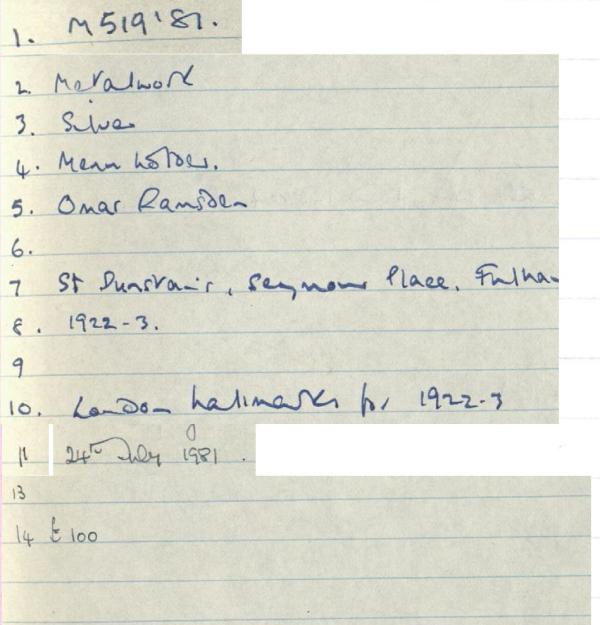 1. M519'81.
2. Metalwork
3. Silver
4. Menu holder.
5. Omar Ramsden
6.
7 St Dunstan's, Seymour Place, Fulham
8. 1922-3.
9
10. London hallmarks for 1922-3
11 24th July 1981.
13
14 £100